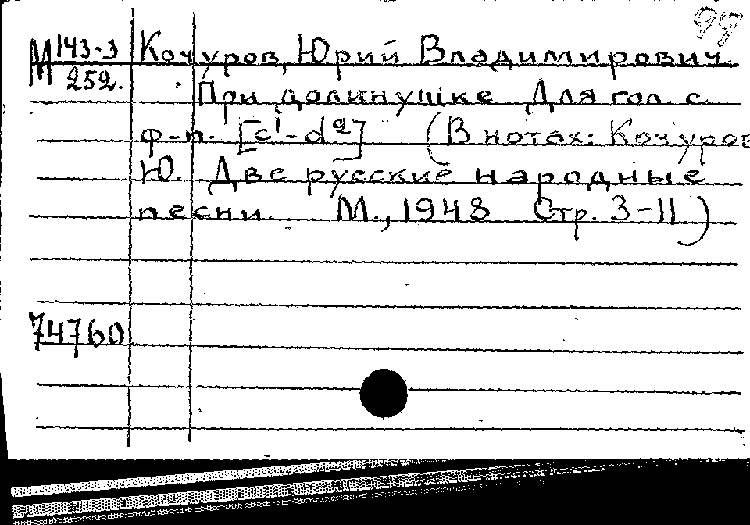 99
М 143-3 Кочуров, Юрий Владимирович
252. При долинушке Для гол. с
ф-п. [c¹-d²] (В нотах: Кочуров
Ю. Две русские народные
песни. М., 1948 Стр. 3-11)
74760